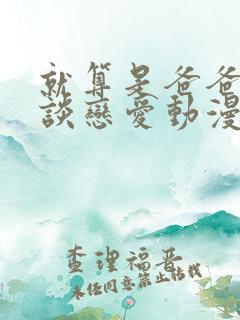 就算是爸爸
談戀愛動漫
查理福晋
未任同意禁止轉載